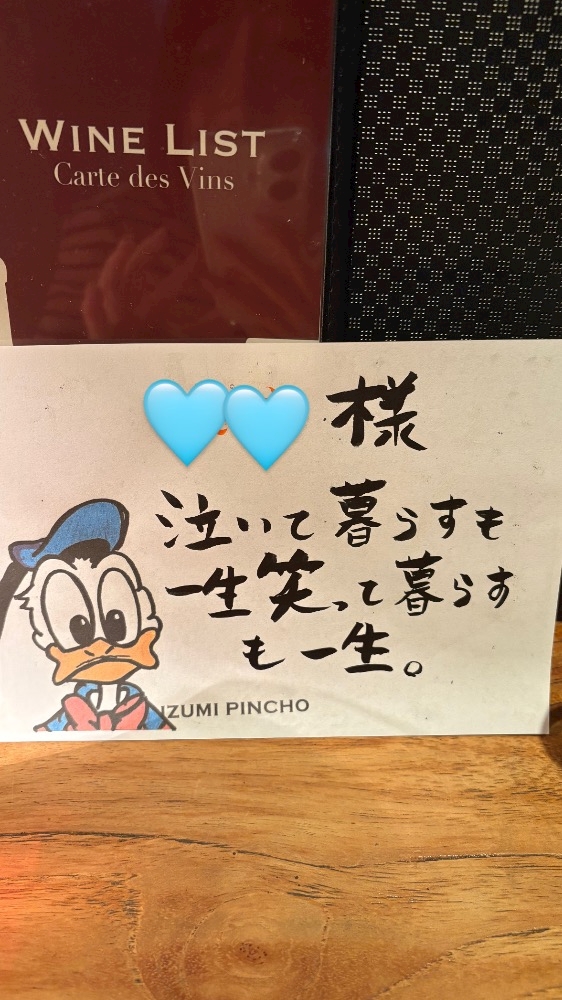 WINE LIST
Carte des Vins
様
泣いて暮らすも
一生笑って暮らす
も一生。
IZUMI PINCHO